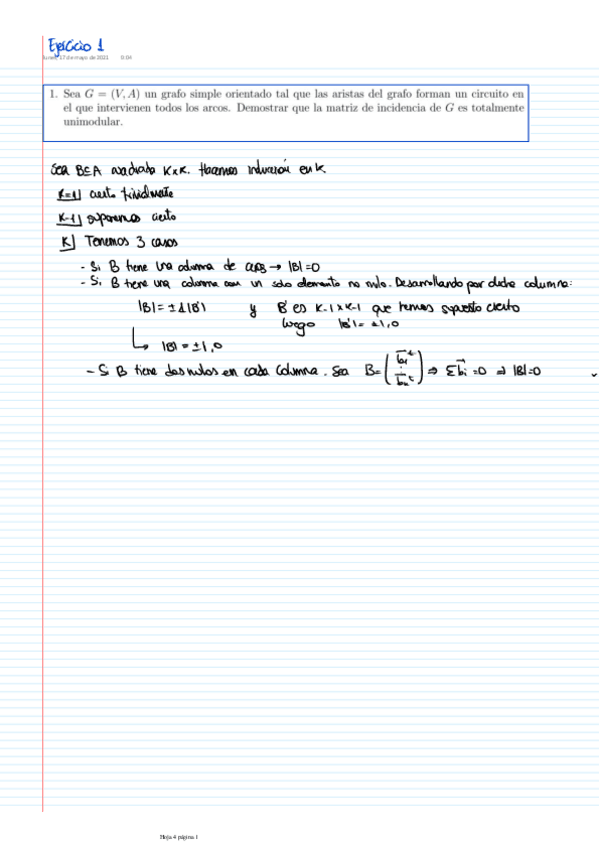 Ejercicio 1
lunes, 17 de mayo de 2021 0:04
1. Sea G = (V, A) un grafo simple orientado tal que las aristas del grafo forman un circuito en
el que intervienen todos los arcos. Demostrar que la matriz de incidencia de G es totalmente
unimodular.
Sea B∈A cuadrada K×K. Hacemos inducción en K.
K=1| cierto trivialmente
K-1| suponemos cierto
K| Tenemos 3 casos
- Si B tiene una columna de → |B|=0
- Si B tiene una columna con un solo elemento no nulo. Desarrollando por dicha columna:
|B| = ±1|B'| y B' es K-1×K-1 que hemos supuesto cierto
luego |B'| = ±1,0
↳ |B| = ±1,0
- Si B tiene dos nulos en cada columna. Sea B = (b₁ᵗ ⋮ bₖᵗ) ⇒ Σbᵢ = 0 ⇒ |B|=0
Hoja 4 página 1